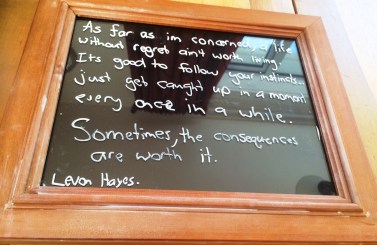 As far as im concerned, a life
without regret ain't worth living.
Its good to follow your instincts...
just get caught up in a moment
every once in a while.
Sometimes, the consequences
are worth it.
Levon Hayes.